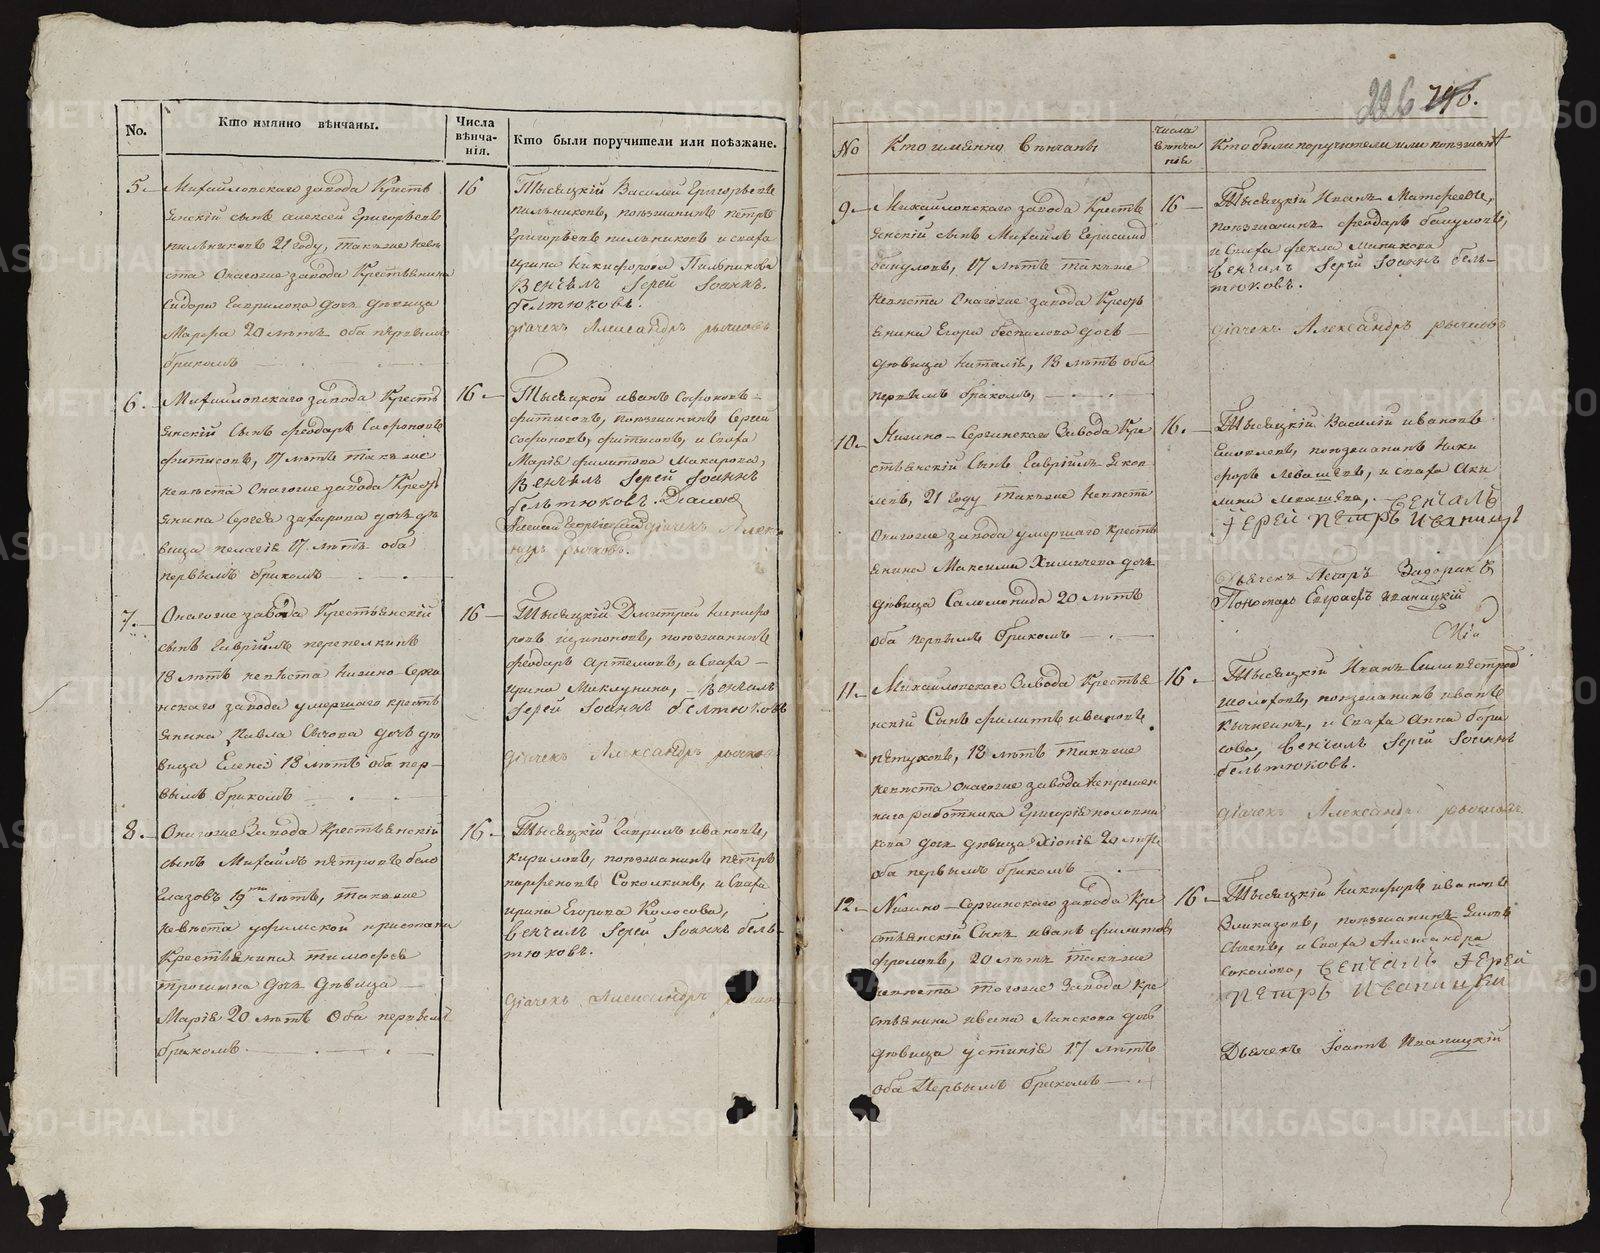 226
No.
Кто имянно вѣнчаны.
Числа вѣнча-
нія.
Кто были поручители или поѣзжане.
5.
Михайловскаго завода Кресть
янскій сынъ Алексей Григорьевъ
пильниковъ 21 году, такъже неве
ста Онагоже завода Крестьянина
Сидора Гаврилова дочь девица
Марфа 20 лѣтъ оба первымъ
бракомъ
16
Тысяцкій Василей Григорьевъ
пильниковъ, поѣзжанинъ петръ
Григорьевъ пильниковъ и сваха
ирина Никифорова Пильникова
Венчалъ Іерей Іоаннъ
бельтюковъ.
діячекъ Александръ рычковъ
6.
Михайловскаго завода Кресть
янскій Сынъ феодаръ Сафроновъ
фитисовъ, 17 лѣтъ такъже
невѣста Онагоже завода Кресть
янина Сергея захарова дочь дѣ
вица пелагія 17 лѣтъ оба
первымъ бракомъ
16
Тысяцкой иванъ Софоновъ
фитисовъ, поѣзжанинъ Сергей
Софоновъ, фитисовъ, и Сваха
Марія филипова Макарова,
Венчалъ Іерей Іоаннъ
бельтюковъ. Діаконъ
діячекъ Алек
андръ рычковъ.
7.
Онагоже завода Крестьянскій
сынъ Гаврійлъ перепелкинъ
18 лѣтъ невѣста Нижно-Серги
нскаго завода умершаго кресть
янина Павла Сычова дочь дѣ
вица Елена 18 лѣтъ оба пер-
вымъ бракомъ
16
Тысяцкій Дмитрей Никифо
ровъ поѣзжанинъ
феодаръ Артемовъ, и Сваха
ирина Миклунина, Венчалъ
Іерей Іоаннъ бельтюковъ
діячекъ Александръ рычков
8.
Онагоже Завода Крестьянскій
сынъ Михайлъ петровъ бело
глазовъ 19 лѣтъ, такъже
невѣста уфимской пристани
Крестьянина тимофея
трошина дочь Девица
Марія 20 лѣтъ Оба первымъ
бракомъ
16.
Тысяцкій Гаврилъ ивановъ,
кириловъ, поѣзжанинъ петръ
парфеновъ Соколкинъ, и Сваха
ирина Егорова Колосова,
Венчалъ Іерей Іоаннъ бель-
тюковъ.
діячекъ Александръ
No
Кто имянно Вѣнчаны
числа
Вѣнча
нія
Кто были поручители или поѣзжаня
9.
Михайловскаго завода Кресть
янскій сынъ Михайлъ Герасимо
бакуловъ, 17 лѣтъ такъже
невѣста Онагоже завода Кресть
янина Егора беспалова дочь
дѣвица Наталія, 18 лѣтъ оба
первымъ бракомъ,
16
Тысяцкій Иванъ Матфеевъ,
поѣзжанинъ феодаръ бакуловъ,
и Сваха фекла
Венчалъ Іерей Іоаннъ бель-
тюковъ.
діячекъ Александръ рычковъ
10.
Нижно-Сергинскаго Завода Кре
стьянскій Сынъ Гаврійлъ Яков
левъ, 21 году такъже невѣста
Онагоже завода умершаго кресть
янина Максима Химичева дочь
дѣвица Саломонида 20 лѣтъ
оба первымъ бракомъ
16.
Тысяцкій Василій ивановъ
поѣзжанинъ Ники
форъ Левашевъ, и сваха Аки
лина левашева, Венчалъ
Іерей Петръ Иваницкі
Дьячекъ Петръ
Пономарь Евграфъ Иваницкій
11.
Михайловскаго Завода Крестья
нскій Сынъ филипъ ивановъ
петуховъ, 18 лѣтъ такъже
невѣста онагоже завода непремен
наго работника Григорія половни
кова дочь девица Хіонія 20 лѣтъ
оба первымъ бракомъ
16.
Тысяцкій Иванъ Силивестров
шолохов, поѣзжанинъ иванъ
и Сваха Анна бори
сова, Венчалъ Іерей Іоаннъ
бельтюковъ.
діячекъ Александръ рычковъ
12.
Нижно-Сергинскаго завода Кре
стьянскій Сынъ иванъ филипов
фроловъ, 20 лѣтъ такъже
невѣста тогоже Завода Кре
стьянина ивана Ланскова дочь
дѣвица устинія 17 лѣтъ
оба Первымъ бракомъ
16
Тысяцкій Никифоръ ивановъ
поѣзжанинъ
и Сваха Александра
соколова, Венчалъ Іерей
Петръ Иваницкій
Дьячекъ Іоаннъ Иваницкій
METRIKI.GASO-URAL.RU